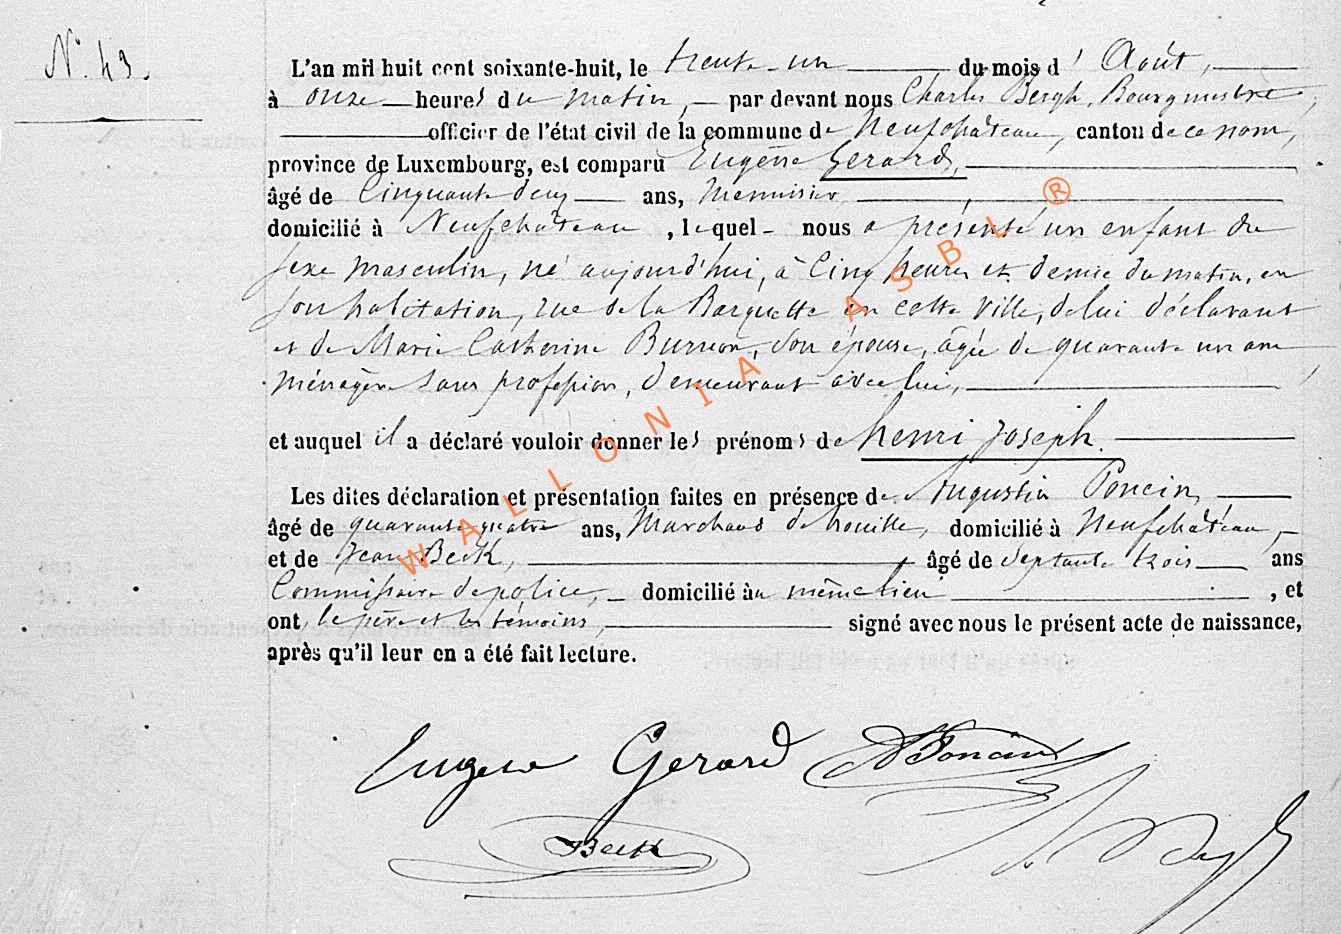 N° 43.
L'an mil huit cent soixante-huit, le trente-un du mois d'Août,
à onze heures du matin, par devant nous Charles Bergh, Bourgmestre,
officier de l'état civil de la commune de Neufchâteau, canton de ce nom,
province de Luxembourg, est comparu Eugène Gerard,
âgé de Cinquante deux ans, Menuisier,
domicilié à Neufchâteau, lequel nous a présenté un enfant du
sexe masculin, né aujourd'hui, à Cinq heures et demie du matin, en
son habitation, rue de la Barquette en cette ville, de lui déclarant
et de Marie Catherine Burnon, son épouse, âgée de quarante un ans
ménagère sans profession, demeurant avec lui,
et auquel il a déclaré vouloir donner les prénoms de henri Joseph.
Les dites déclaration et présentation faites en présence de Augustin Poncin,
âgé de quarante quatre ans, Marchand de houille, domicilié à Neufchâteau,
et de Jean Beck, âgé de septante trois ans
Commissaire de police, domicilié au même lieu, et
ont, le père et les témoins, signé avec nous le présent acte de naissance,
après qu'il leur en a été fait lecture.
Eugène Gerard
A Poncin
Beck
WALLONIA ASBL ®